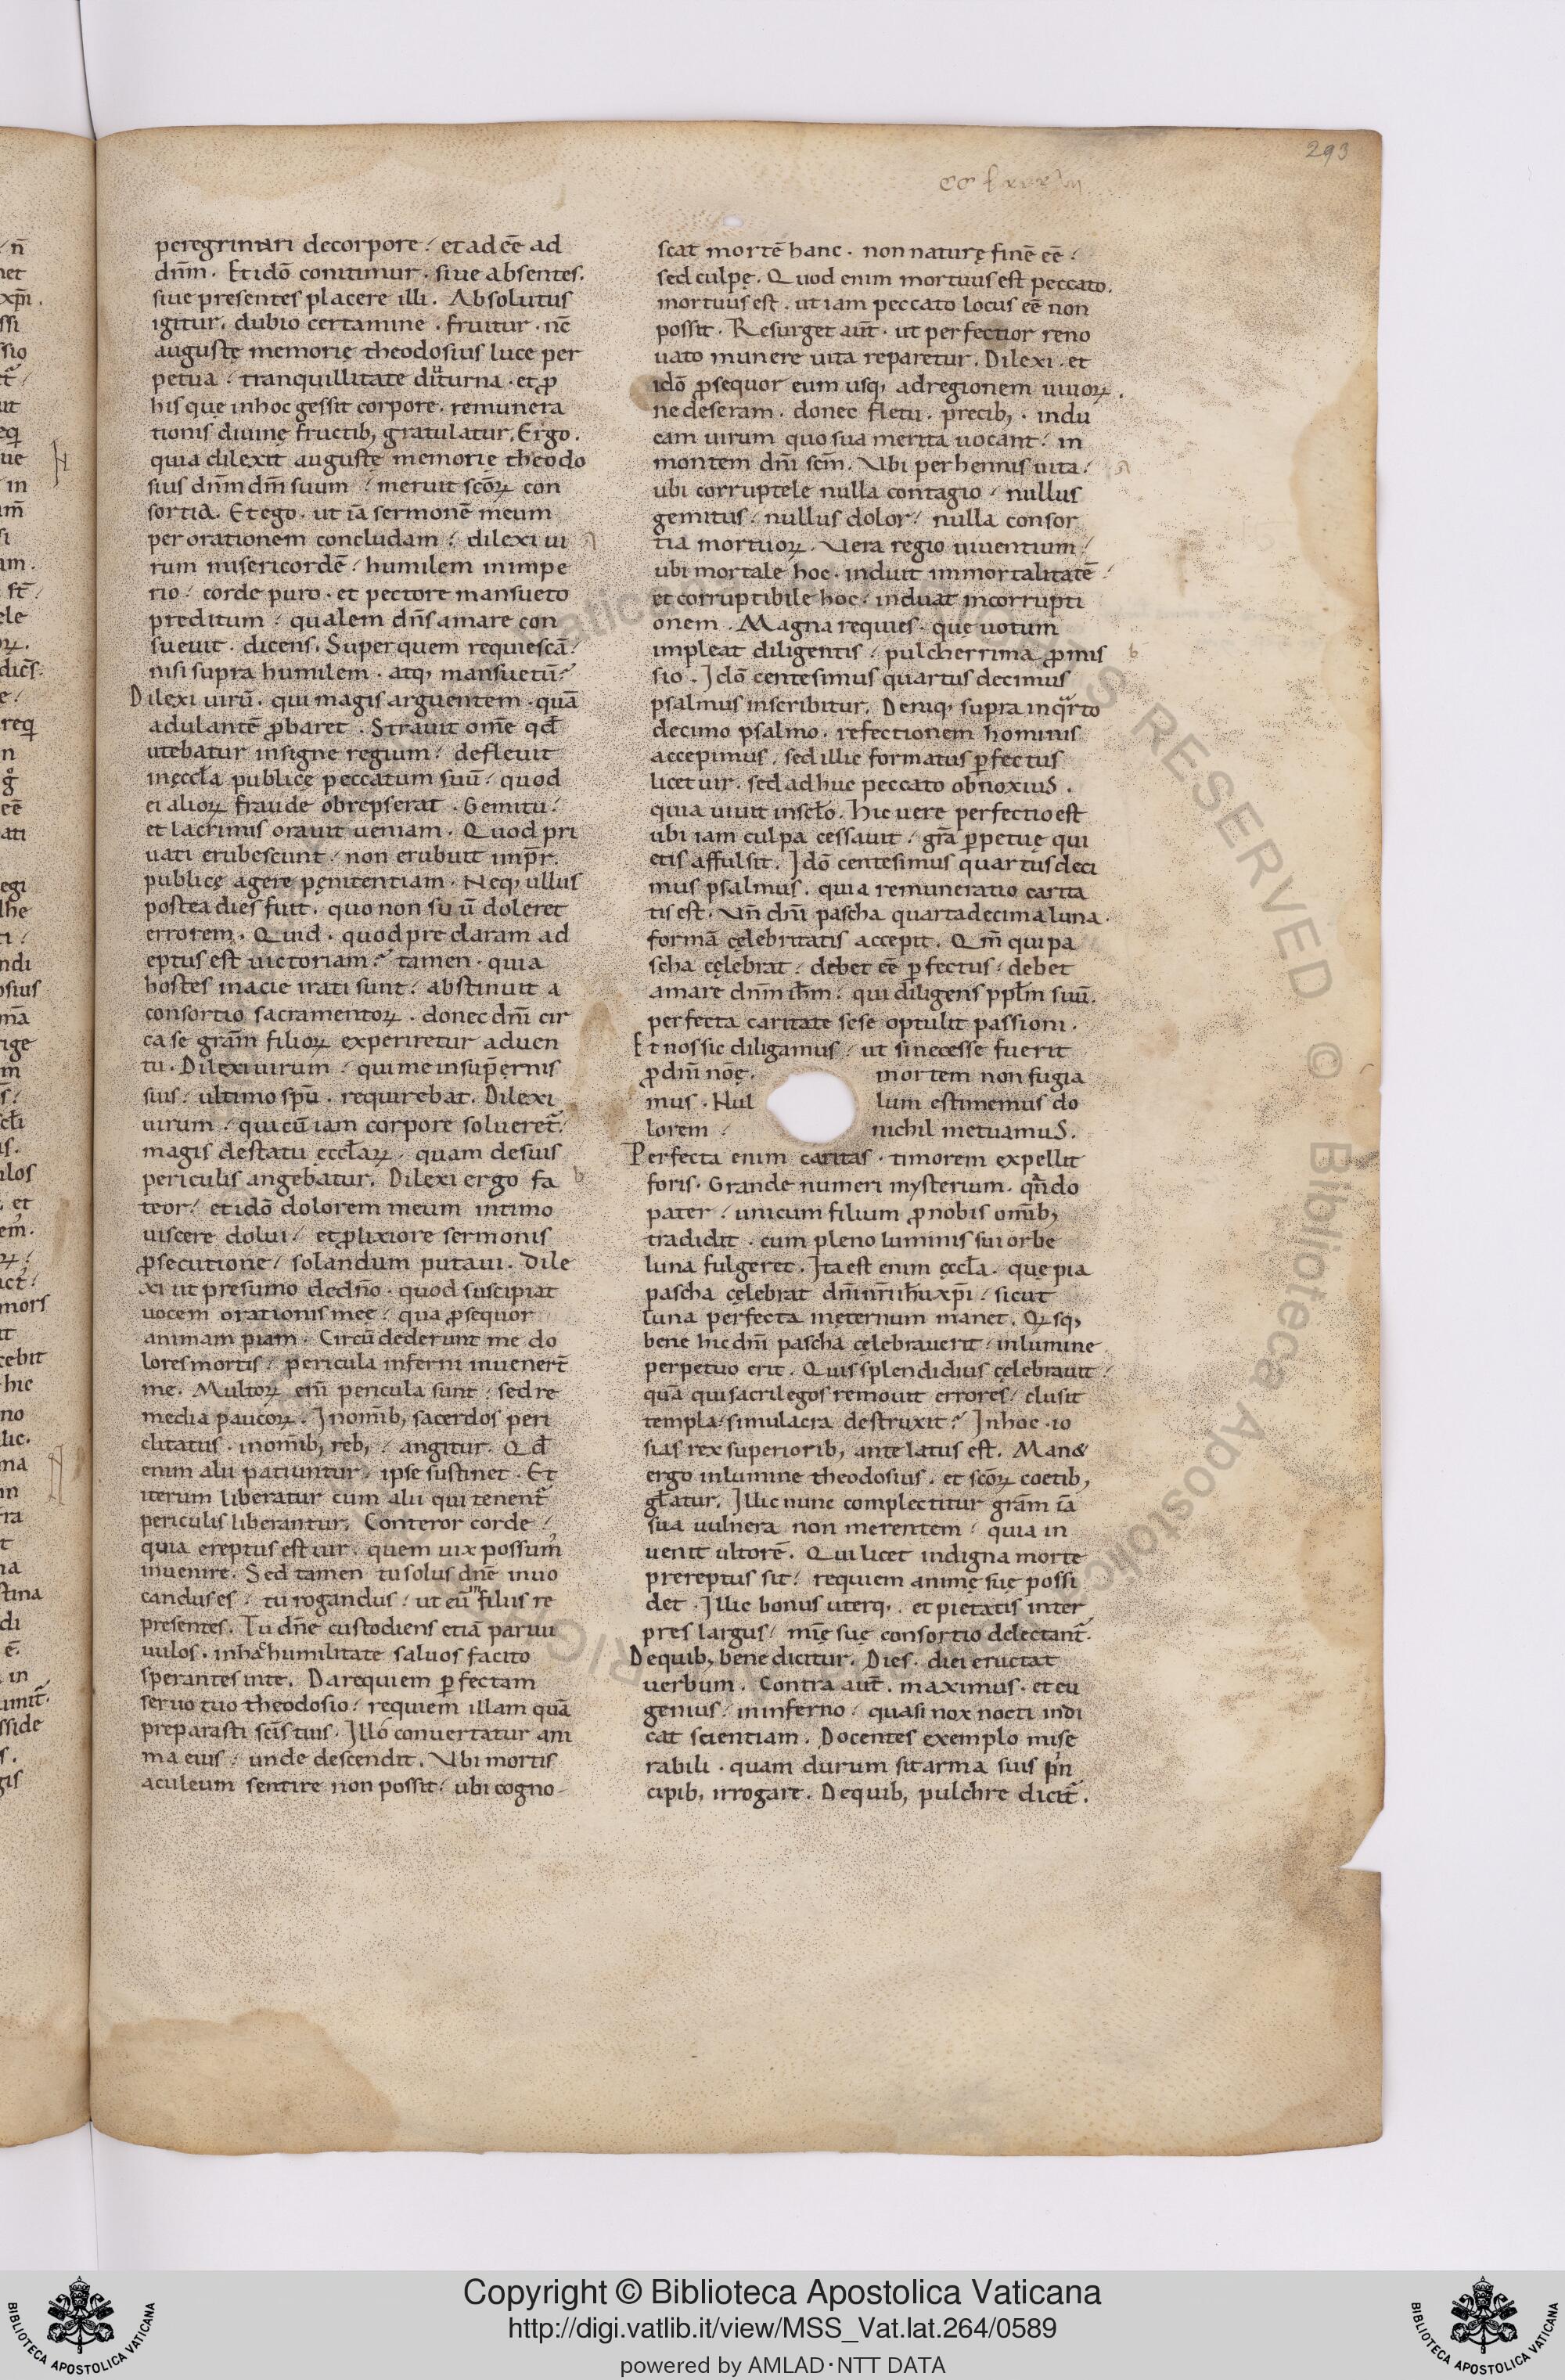 293
peregrinari decorpore / et ad eē ad
dn̄m . Et idō conitimur . siue absentes .
siue presentes placere illi . Absolutus
igitur . dubio certamine . fruitur . nc̄
augustę memorię theodosius luce per
petua / tranquillitate diuturna . et ꝓ
his que inhoc gessit corpore . remunera
tionis diuinę fructib; gratulatur . Ergo .
quia dilexit augustę memorię theodo
sius dn̄m dm̄ suum / meruit scōꝝ con
sortia . Et ego . ut iā sermonē meum
perorationem concludam / dilexi ui
rum misericordē / humilem inimpe
rio / corde puro . et pectore mansueto
preditum / qualem dn̄s amare con
sueuit . dicens . Super quem requiescā /
nisi supra humilem . atq; mansuetū /
Dilexi uirū . qui magis arguentem . quā
adulantē ꝓbaret . Strauit om̄e qd̄
utebatur insigne regium / defleuit
inęccl̄a publicę peccatum suū / quod
ei alioꝝ fraude obrepserat . Gemitu /
et lacrimis orauit ueniam . Quod pri
uati erubescunt / non erubuit imp̄r .
publicę agere pęnitentiam . Neq; ullus
postea dies fuit . quo non suū doleret
errorem . Quid . quod preclaram ad
eptus est uictoriam / tamen . quia
hostes inacie irati sunt / abstinuit a
consortio sacramentoꝝ . donec dn̄i cir
ca se grām filioꝝ experiretur aduen
tu . Dilexi uirum / qui me insup̄ernis
suis / ultimo sp̄u . requirebat . Dilexi
uirum / qui cū iam corpore solueret̄ /
magis destatu ęccl̄aꝝ . quam desuis
periculis angebatur . Dilexi ergo fa
teor / et idō dolorem meum intimo
uiscere dolui / et ꝓlixiore sermonis
ꝓsecutione / solandum putaui . Dile
xi ut presumo dedn̄o . quod suscipiat
uocem orationis meę / qua ꝓsequor
animam piam . Circū dederunt me do
lores mortis / pericula inferni inuenert̄
me . Multoꝝ em̄ pericula sunt / sed re
media paucoꝝ . Inom̄ib; sacerdos peri
clitatus . inom̄ib; reb; / angitur . Qd̄
enim alii patiuntur / ipse sustinet . Et
iterum liberatur cum alii qui tenent̄
periculis liberantur . Conteror corde /
quia ereptus est uir . quem uix possum̕
inuenire . Sed tamen tu solus dn̄e inuo
candus es / tu rogandus / ut eū in filiis re
presentes . Tu dn̄e custodiens etiā paruu
uulos . inhac humilitate saluos facito
sperantes inte . Da requiem ꝑfectam
seruo tuo theodosio / requiem illam quā
preparasti sc̄is tuis . Illo conuertatur ani
ma eius / unde descendit . Vbi mortis
aculeum sentire non possit / ubi cogno-
scat mortē hanc . non naturę finē eē /
sed culpę . Quod enim mortuus est peccato .
mortuus est . ut iam peccato locus eē non
possit . Resurget aut̄ . ut perfectior reno
uato munere uita reparetur . Dilexi . et
idō ꝓsequor eum usq; adregionem uiuoꝝ .
ne deseram . donec fletu . precib; . indu
cam uirum quo sua merita uocant / in
montem dn̄i sc̄m . Vbi perhennis uita /
ubi corruptele nulla contagio / nullus
gemitus / nullus dolor / nulla consor
tia mortuoꝝ . Vera regio uiuentium /
ubi mortale hoc . induit immortalitatē /
et corruptibile hoc / induat incorrupti
onem . Magna requies . que uotum
impleat diligentis / pulcherrima ꝓmis
sio . Idō centesimus quartus decimus
psalmus inscribitur . Deniq; supra inqͣrto
decimo psalmo . refectionem hominis
accepimus . sed illic formatus ꝑfectus
licet uir . sed adhuc peccato obnoxius .
quia uiuit inscl̄o . Hic uere perfectio est
ubi iam culpa cessauit / grā ꝑpetuę qui
etis affulsit . Idō centesimus quartus deci
mus psalmus . quia remuneratio carita
tis est . Vn̄ dn̄i pascha quarta decima luna .
formā cęlebritatis accepit . Qm̄ qui pa
scha cęlebrat / debet eē ꝑfectus / debet
amare dn̄m ih̄m / qui diligens ppl̄m suū .
perfecta caritate sese optulit passioni .
Et nos sic diligamus / ut si necesse fuerit
ꝓ dn̄i nōe . mortem non fugia
mus . Nul lum estimemus do
lorem / nichil metuamus .
Perfecta enim caritas . timorem expellit
foris . Grande numeri mysterium . qn̄do
pater / unicum filium ꝓ nobis om̄ib;
tradidit . cum pleno luminis sui orbe
luna fulgeret . Ita est enim ęccl̄a . quę pia
pascha cęlebrat dn̄i nr̄i ih̄u xp̄i / sicut
luna perfecta inęternum manet . Qꝝsq;
bene hic dn̄i pascha cęlebrauerit / inlumine
perpetuo erit . Quis splendidius cęlebrauit /
quā qui sacrilegos remouit errores / clusit
templa / simulacra destruxit / Inhoc . io
sias rex superiorib; ante latus est . Man&
ergo inlumine theodosius . et scōꝝ coetib;
gl̄atur . Illic nunc complectitur grām iā
sua uulnera non merentem / quia in
uenit ultorē . Qui licet indigna morte
prereptus sit / requiem animę suę possi
det . Illic bonus uterq; . et pietatis inter
pres largus / mīę suę consortio delectant̄ .
Dequib; bene dicitur . Dies . diei eructat
uerbum . Contra aut̄ . maximus . et eu
genius / ininferno / quasi nox nocti indi
cat scientiam . Docentes exemplo mise
rabili . quam durum sit arma suis pͥn
cipib; irrogare . Dequib; pulchre dicit̄ .
Copyright © Biblioteca Apostolica Vaticana
http://digi.vatlib.it/view/MSS_Vat.lat.264/0589
powered by AMLAD·NTT DATA
BIBLIOTECA APOSTOLICA VATICANA
BIBLIOTECA APOSTOLICA VATICANA